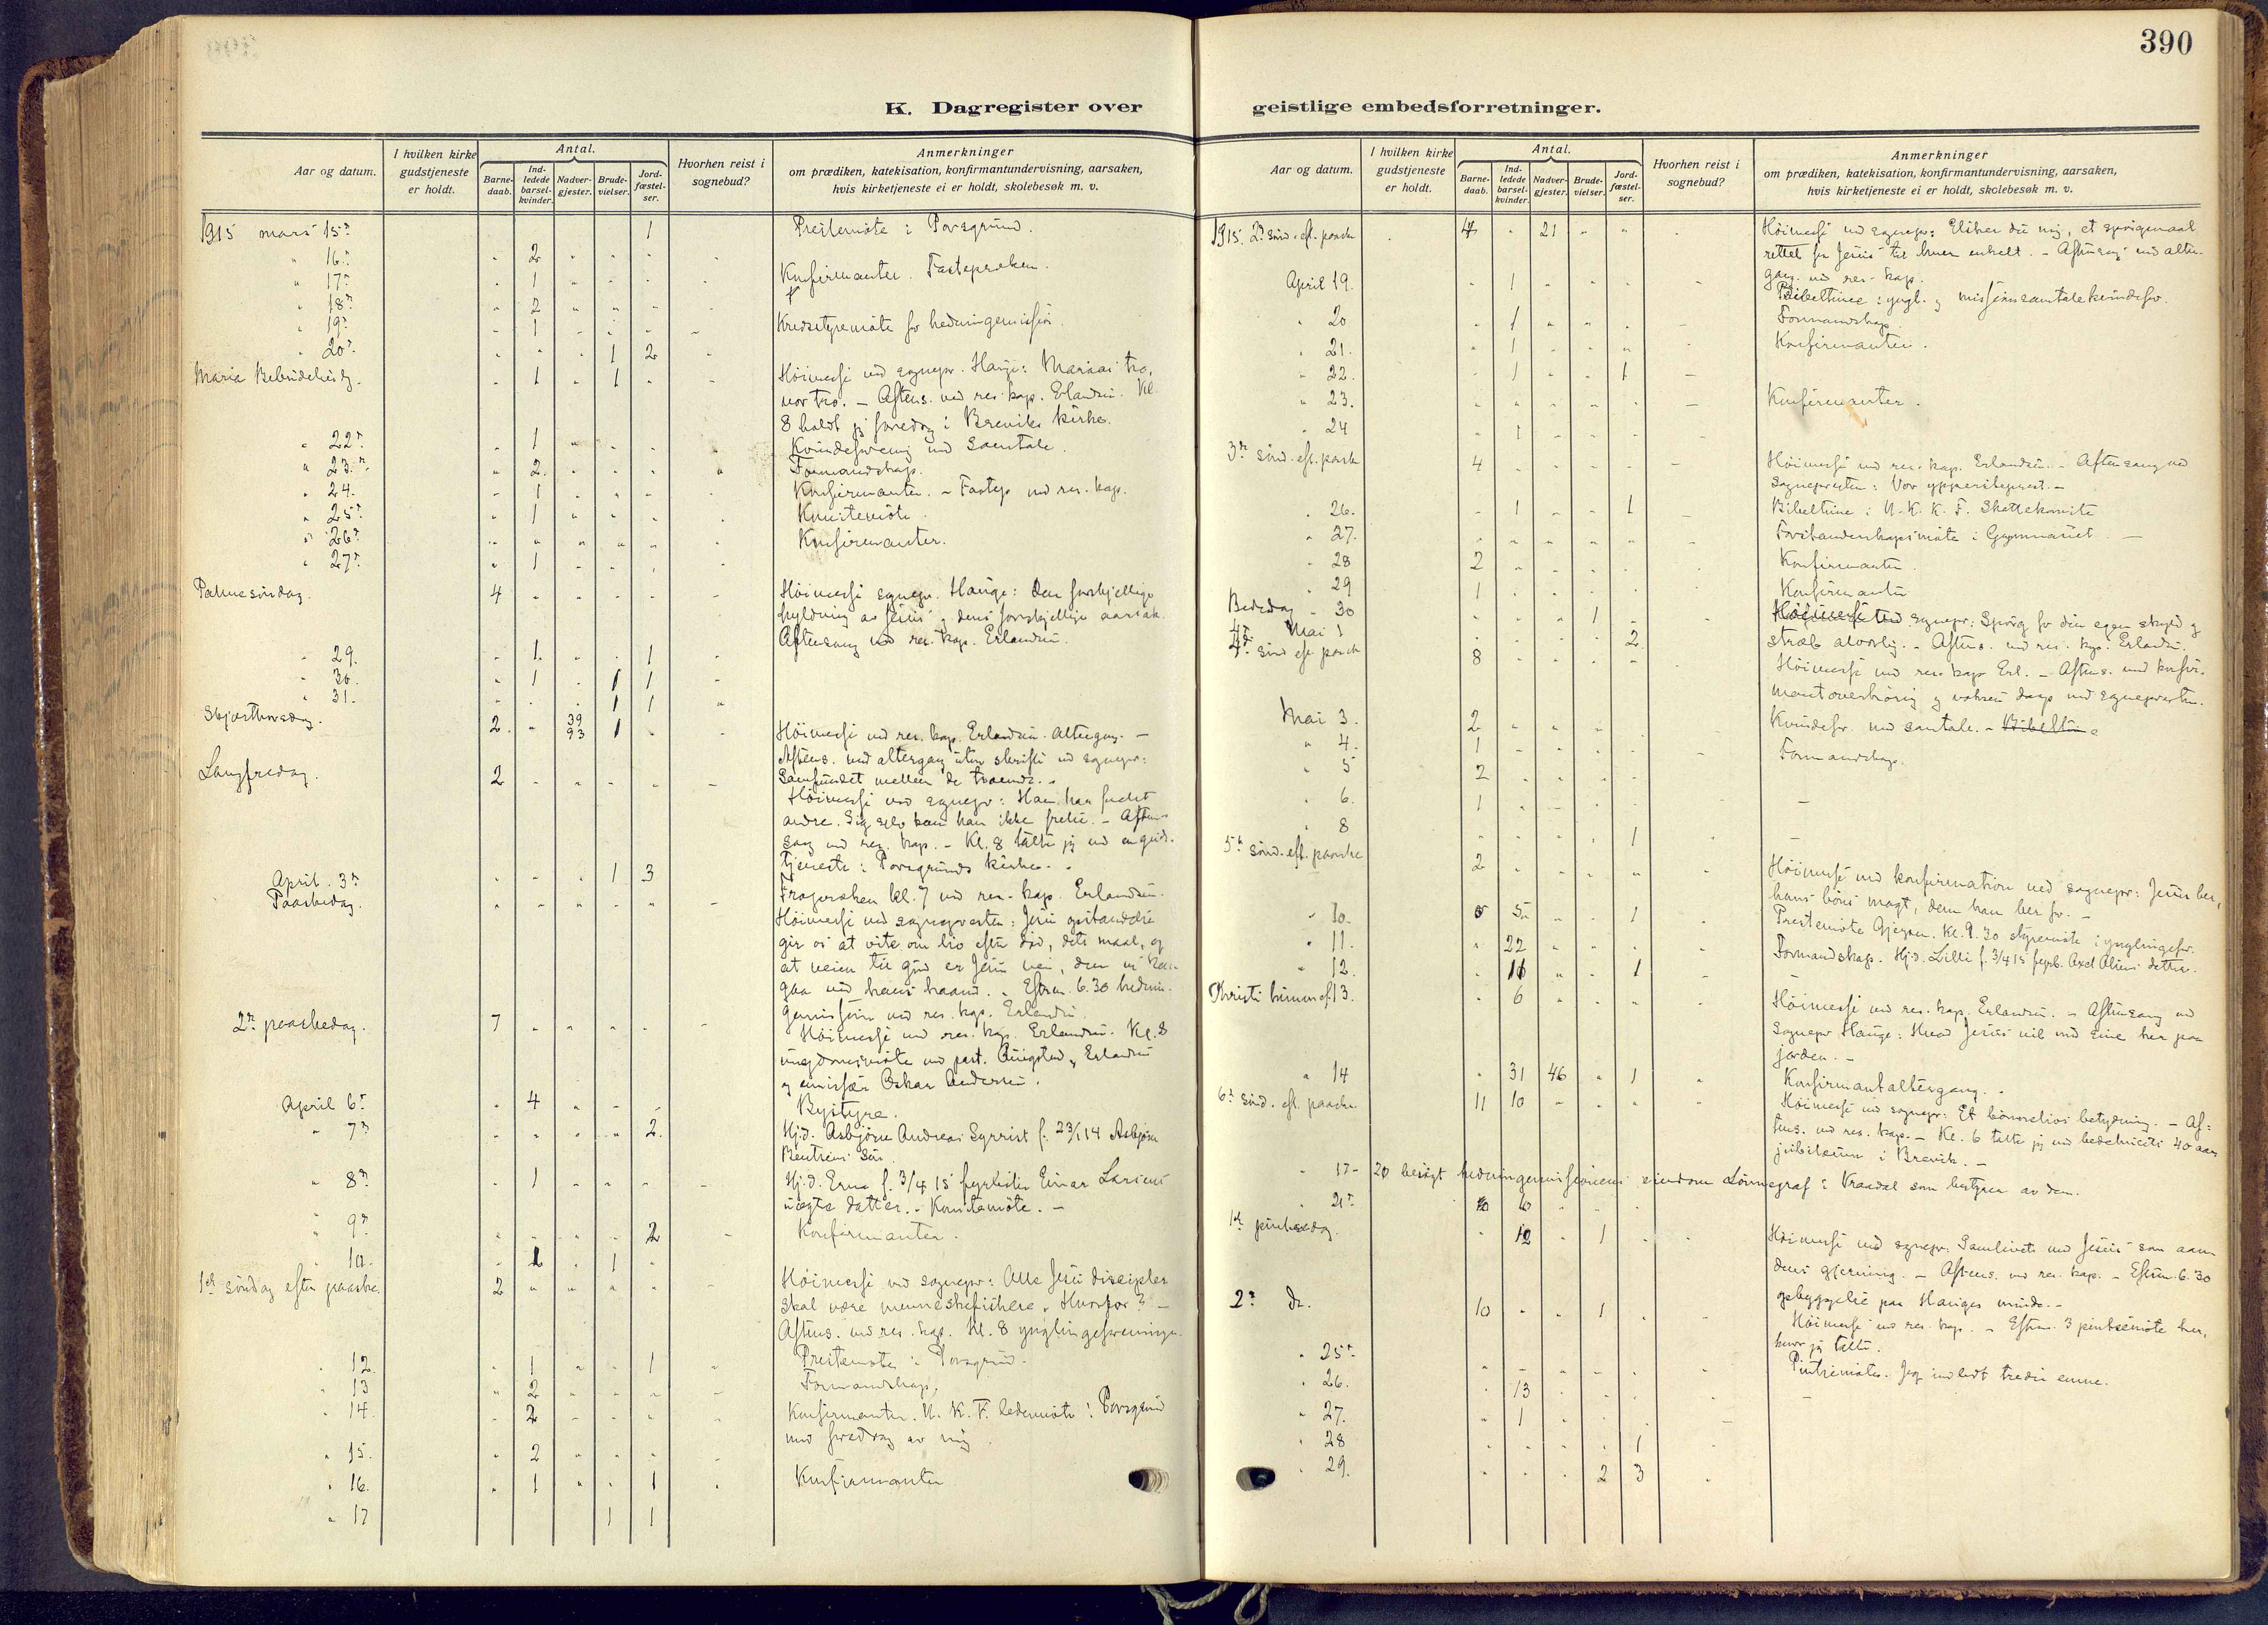 390
K. Dagregister over
geistlige embedsforretninger.
Aar og datum.
I hvilken kirke gudstjeneste er holdt.
Antal.
Barne-daab.
Ind-ledede barsel-kvinder.
Nadver-gjester.
Brude-vielser.
Jord-fæstel-ser.
Hvorhen reist i sognebud?
Anmerkninger
om prædiken, katekisation, konfirmantundervisning, aarsaken,
hvis kirketjeneste ei er holdt, skolebesøk m. v.
1915 mars 15de 1 Prestemøte i Porsgrund.
" 16. 2
" 17. 1 Konfirmanter. Fastepræken.
" 18. 2
" 19. 1 Kredsstyremøte for hedningemissjon.
" 20. 1 2
Maria Bebudelsesdg. 1 1 Høimesse ved sognepr. Hauge: Marias tro,
vor tro. – Aftens. ved res. kap. Erlandsen. Kl.
8 holdt jeg foredrag i Breviks kirke.
" 22. 1 Kvindeforening med samtale.
" 23. 2 Formandskap.
" 24. 1 Konfirmanter. – Fastep. ved res. kap.
" 25. 1
" 26. Konfirmanter.
" 27. 1
Palmesøndag. 4 Høimesse sognepr. Hauge: Den forskjellige
hyldning av Jesus og dens forskjellige aarsak.
Aftensang ved res. kap. Erlandsen.
" 29. 1 1
" 30. 1 1 1
" 31. 1 1
Skjærthorsdag. 2 39 93 1 Høimesse ved res. kap. Erlandsen. Altergang. –
Aftens. med altergang uten skrifte ved sognepr:
Samfundet mellem de troende. –
Langfredag. 2
Høimesse ved sognepr: Han har frelst
andre. Sig selv kan han ikke frelse. – Aften-
sang ved res. kap. – Kl. 8 talte jeg ved en guds-
tjeneste i Porsgrunds kirke. –
April. 3. 1 3
Paaskedag. Høimesse ved sognepresten: Jesu opstandelse
gir os at vite om liv efter død, dets maal, og
at veien til Gud er Jesu vei, den vi kan
gaa ved hans haand. – Efterm. 6.30 hednin-
gemission ved res. kap. Erlandsen.
2. paaskedag. 7 Høimesse ved res. kap. Erlandsen. Kl. 8
ungdomsmøte ved past. Ringstad, Erlandsen
og emissær Oskar Andersen.
April 6. 4 Bystyre.
" 7. 2. Hj.d. Asbjørn Andreas Syrrist f. 23/1 14 Asbjørn
Bentsens søn.
" 8. 1 Hj.d. Erna f. 3/4 15 fyrbøter Einar Larsens
uegte datter. –
" 9. 2 Konfirmanter.
" 10. 1 1
1ste søndag efter paaske. 2 Høimesse ved sognepr: Alle Jesu disciple
skal være menneskefiskere. Hvorfor? –
Aftens. ved res. kap. Kl. 8 ynglingeforeningen.
" 12 1 1 Prestemøte i Porsgrund.
" 13 2 Formandskap.
" 14. 2 Konfirmanter. U. K. F. ledermøte i Porsgrund
med foredrag av mig.
" 15. 2
" 16. 1 1 Konfirmanter
" 17 1 1
1915. 2. sønd. eft. paaske 4 21 Høimesse ved sognepr: Elsker du mig, et spørgsmaal
rettet fra Jesus til hver enkelt. – Aftensang med alter-
gang ved res. kap.
April 19. 1 Bibeltime i yngl. og missionssamtale kvindefor.
" 20 1 Formandskap
" 21. 1 Konfirmanter.
" 22. 1 1
" 23. Konfirmanter.
" 24 1
3. sønd. eft. paaske 4 Høimesse ved res. kap. Erlandsen. – Aftensang ved
sognepresten: Vor ypperstеprest. –
" 26. 1 1 Bibeltime i U. K. K. F. Skattekomite
" 27. Forstanderskapsmøte i Gymnasiet. –
" 28 2 Konfirmanter.
" 29 1 Konfirmanter
Bededag " 30 1 Høimesse ved sognepr: Spørg for din egen skyld og
stræb alvorlig. – Aftens. ved res. kap. Erlandsen.
Mai 1 2
4. sønd eft paaske 8 Høimesse ved res. kap Erl. – Aftens. med konfir-
mantoverhøring og voksen daap ved sognepresten.
Mai 3. 2 Kvindefor. med samtale. – Bibeltime
" 4. 1 Formandskap.
" 5 2
" 6. 1
" 8 1
5. sønd. eft. paaske 2 Høimesse med konfirmation ved sognepr: Jesus ber,
hans bøns magt, dem han ber for. –
" 10. 5 1 Prestemøte Gjerpen. Kl. 9.30 styremøte i ynglingefor.
" 11. 22 Formandskap. Hj.d. Lilli f. 3/4 15 Axel Olsens datter.
" 12. 11 1
Kristi himmelf. 13. 6 Høimesse ved res. kap. Erlandsen. – Aftensang ved
sognepr Hauge: Hvad Jesus vil med sine her paa
jorden. –
" 14 31 46 1 Konfirmantaltergang. –
6. sønd. eft. paaske. 11 10 Høimesse ved sognepr: Et bønnelivs betydning. – Af-
tens. ved res. kap. – Kl. 6 talte jeg ved bedehusets 40 aars
jubilæum i Brevik. –
" 17–20 besøgt hedningemissionens eiendom i Kraadal som bestyrer av den.
" 21.
1ste pinsedag. 12 1 Høimesse ved sognepr: Samlivet med Jesus som aan-
dens gjerning. – Aftens. ved res. kap. – Efterm. 6.30
opbyggelse paa Hauges minde. –
2. do. 10 1 Høimesse ved res. kap. – Efterm. 3 pinsemøte her,
hvor jeg talte.
" 25. Pinsemøte. Jeg indledet tredie emne.
" 26. 13
" 27. 1
" 28 1
" 29. 2 3